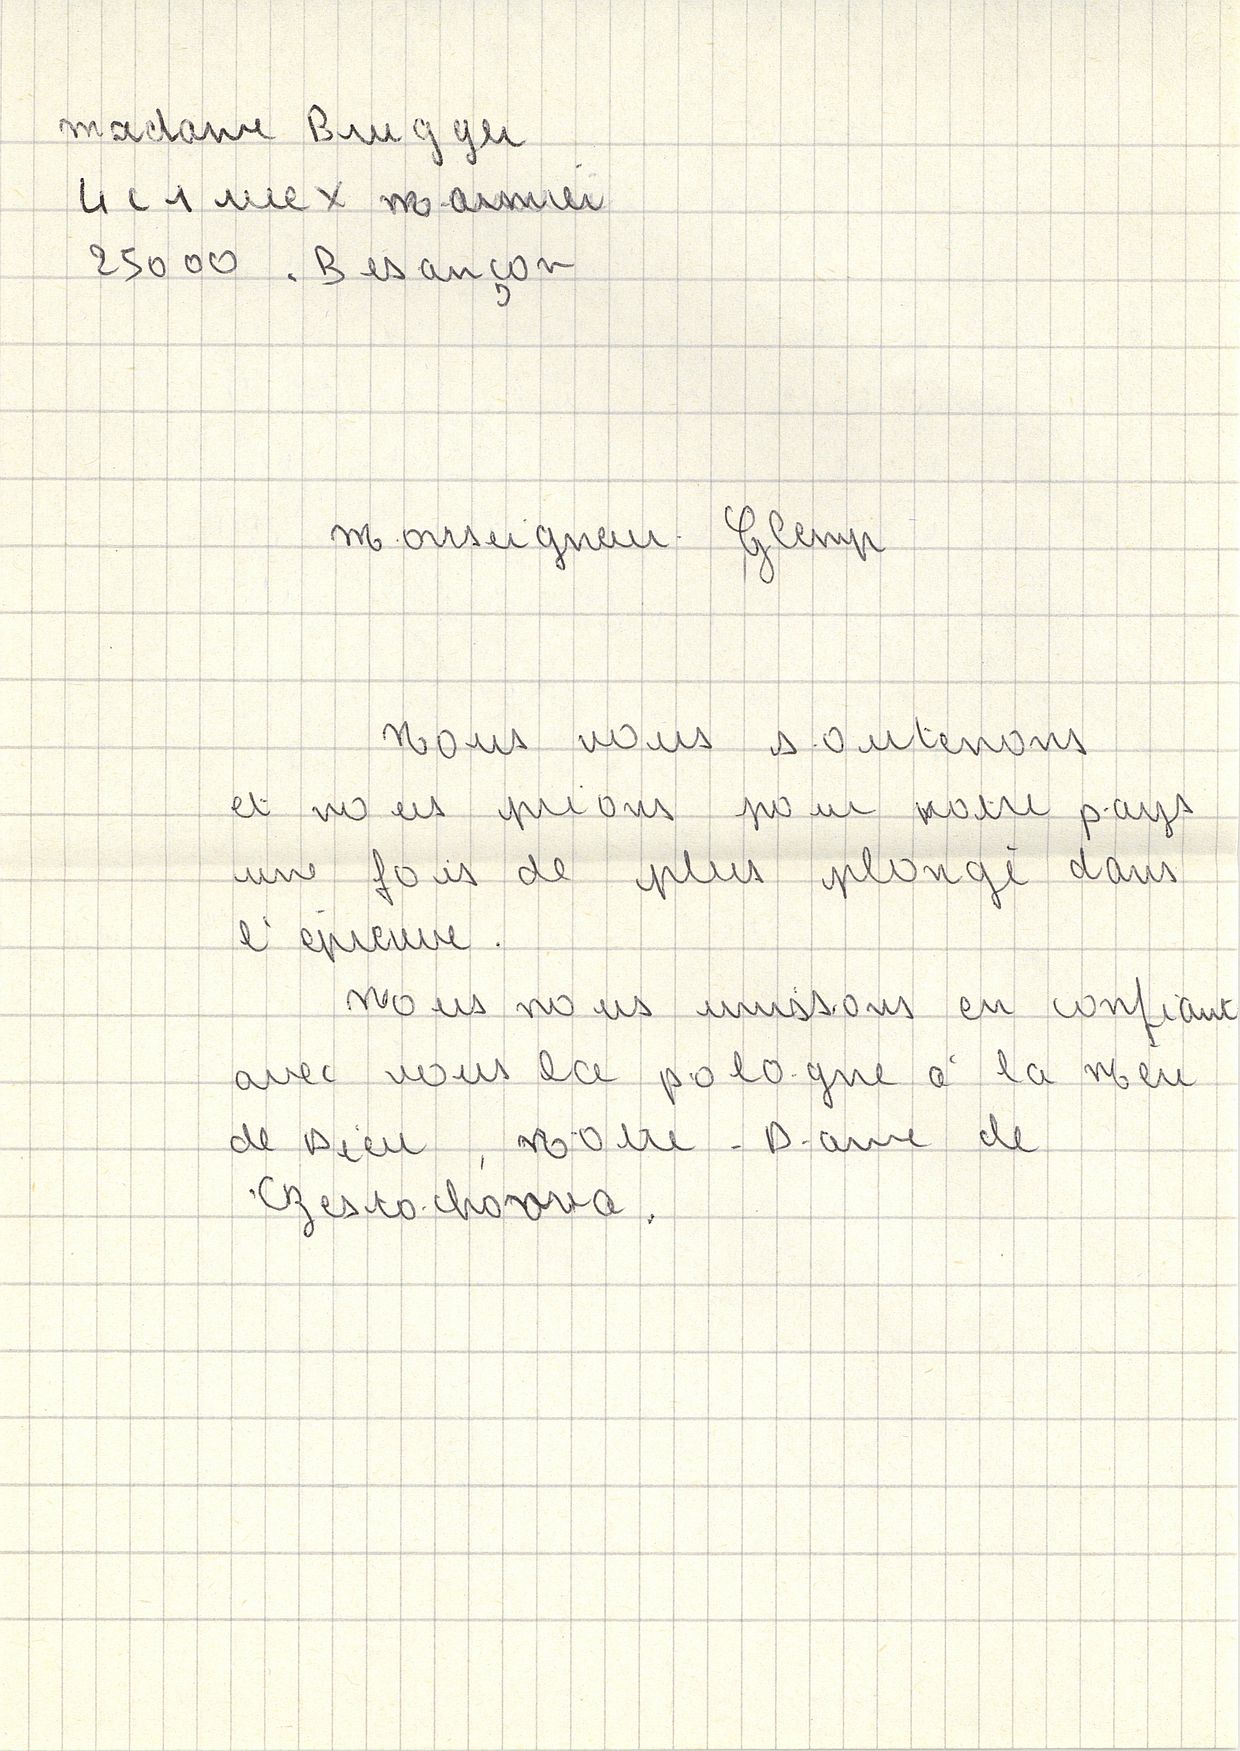 madame Brugger
4 c 1 rue X marmier
25000 . Besançon
monseigneur Glemp
Nous vous soutenons
et nous prions pour votre pays
une fois de plus plongé dans
l'épreuve.
Nous nous unissons en confiant
avec vous la pologne à la Mère
de Dieu, Notre-Dame de
Czestochowa.